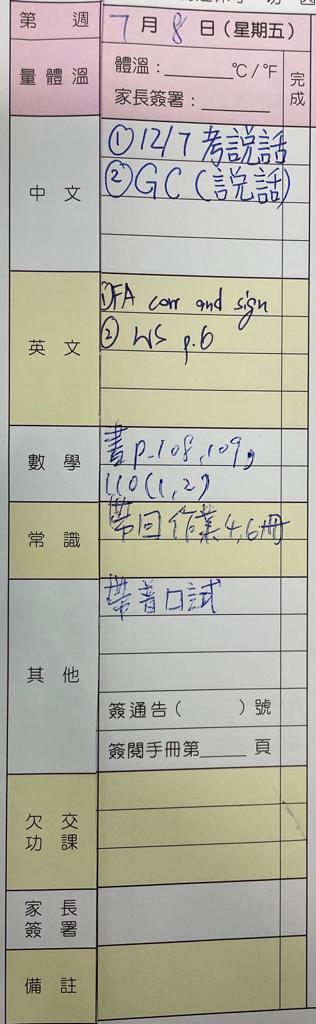 第 週 7 月 8 日 (星期五)
量體溫 體溫：______°C/°F 完成
家長簽署：______
中文 ①12/7 考說話
②GC (說話)
英文 ①FA corr and sign
② WS p.6
數學 書p.108,109,
110(1,2)
常識 帶回作業4,6冊
其他 帶普口試
簽通告( )號
簽閱手冊第____頁
欠交功課
家長簽署
備註